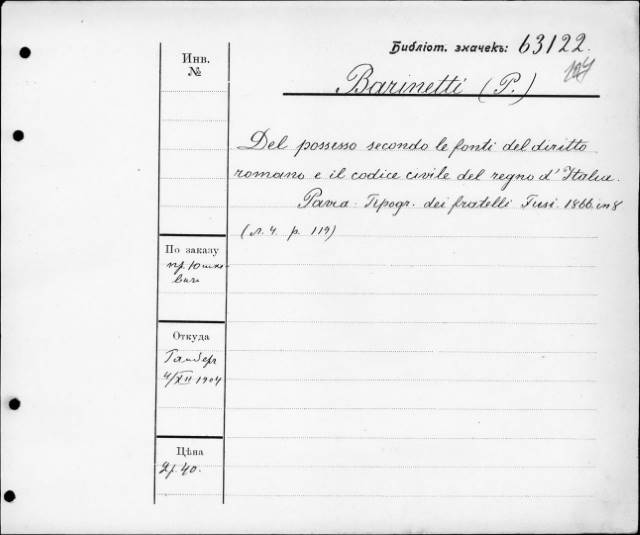 Библіот. значекъ: 63122.
107
Инв.
№
Barinetti (P.)
Del possesso secondo le fonti del diritto
romano e il codice civile del regno d'Italia.
Pavia. Tipogr. dei fratelli Fusi. 1866. in 8
(л. 4. p. 119)
По заказу
пр. Юшке-
вича
Откуда
4/XII 1904
Цѣна
2р. 40.